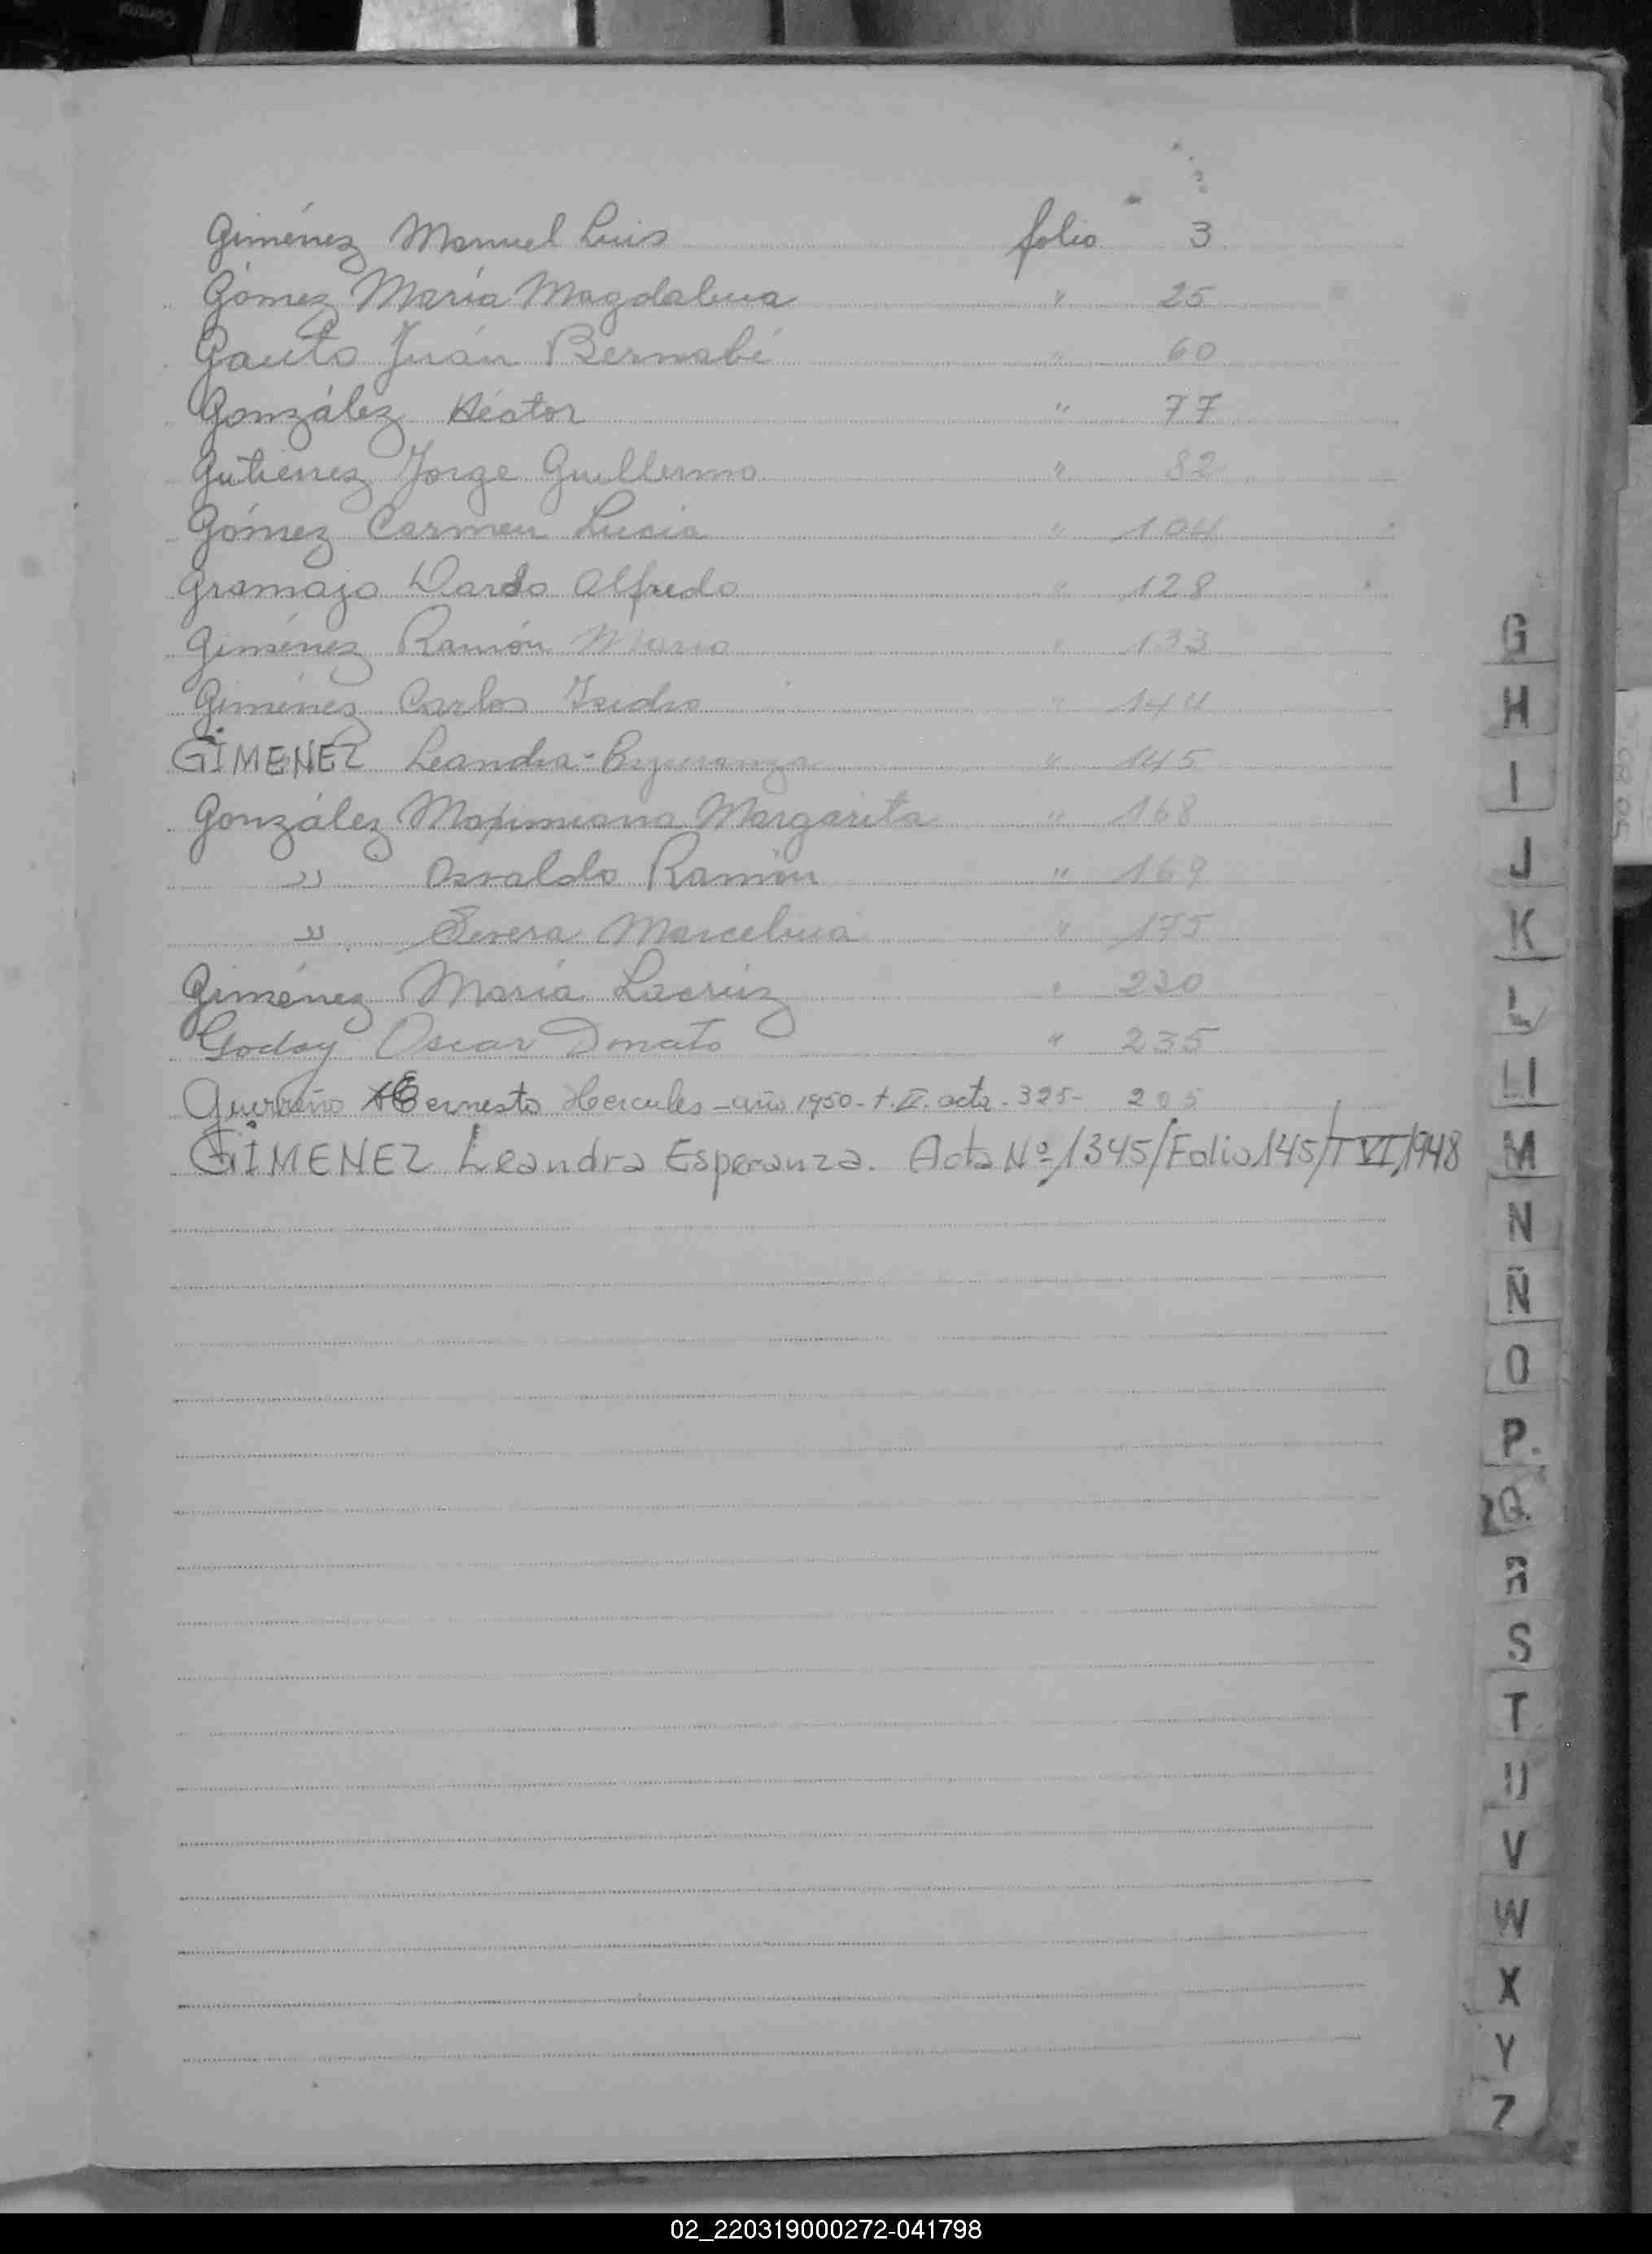 Giménez Manuel Luis folio 3
Gómez María Magdalena " 25
Gauto Juán Bernabé " 60
González Héctor " 77
Gutierrez Jorge Guillermo " 82
Gómez Carmen Lucía " 104
Gramajo Dardo Alfredo " 128
Giménez Ramón Mario " 133
Giménez Carlos Isidro " 144
GIMENEZ Leandra Esperanza " 145
González Maximiana Margarita " 168
" Osvaldo Ramón " 169
" Severa Marcelina " 175
Giménez María Lacrúz " 230
Godoy Oscar Donato " 235
Ernesto Hercules - año 1950 - t. II. acta - 325 - 205
GIMENEZ Leandra Esperanza. Acta Nº 1345/Folio 145/T VI/1948
G
H
I
J
K
L
Ll
M
N
Ñ
O
P.
Q
R
S
T
U
V
W
X
Y
Z
02_220319000272-041798